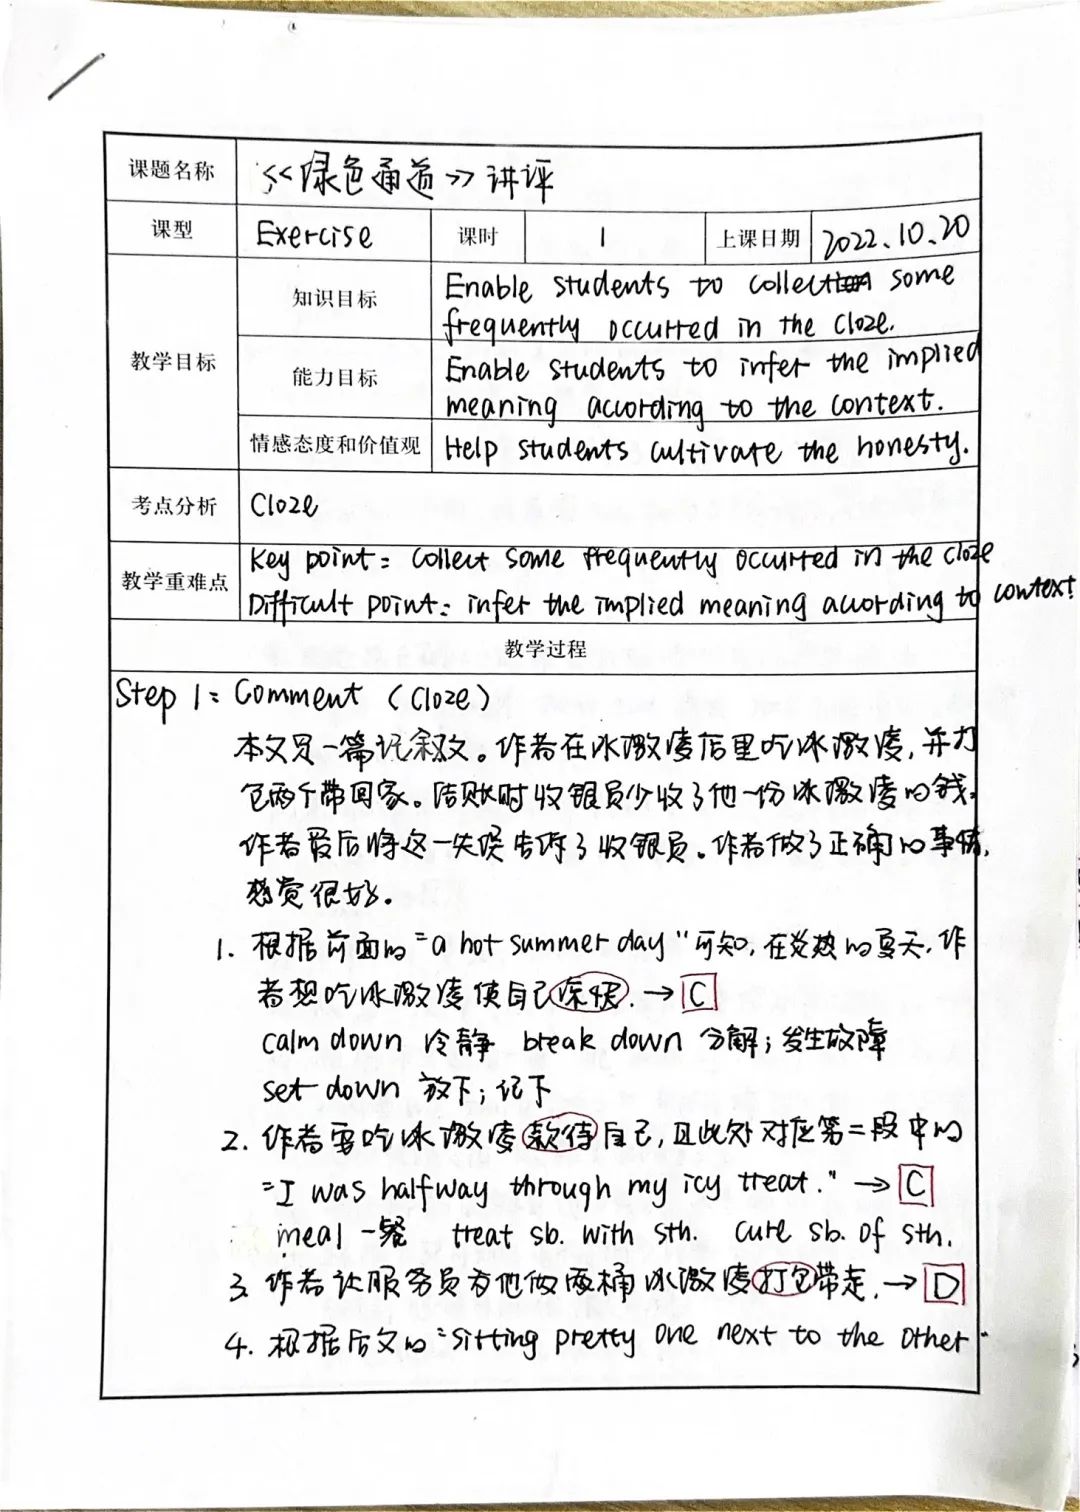 课题名称 《绿色通道》讲评
课型 Exercise 课时 1 上课日期 2022.10.20
教学目标
知识目标 Enable students to collect some
frequently occurred in the cloze.
能力目标 Enable students to infer the implied
meaning according to the context.
情感态度和价值观 Help students cultivate the honesty.
考点分析 Cloze
教学重难点
Key point: collect some frequently occurred in the cloze
Difficult point: infer the implied meaning according to context!
教学过程
Step 1: Comment (Cloze)
本文是一篇记叙文。作者在冰激凌店里吃冰激凌,并打
包两个带回家。结账时收银员少收了他一份冰激凌的钱。
作者最后将这一失误告诉了收银员。作者做了正确的事情,
感觉很好。
1. 根据前面的"a hot summer day"可知,在炎热的夏天,作
者想吃冰激凌使自己凉快.→ C
calm down 冷静 break down 分解;发生故障
set down 放下;记下
2. 作者要吃冰激凌款待自己,且此处对应第二段中的
"I was halfway through my icy treat." → C
meal 一餐 treat sb. with sth. cure sb. of sth.
3. 作者让服务员为他做两桶冰激凌打包带走.→ D
4. 根据后文的"sitting pretty one next to the other"